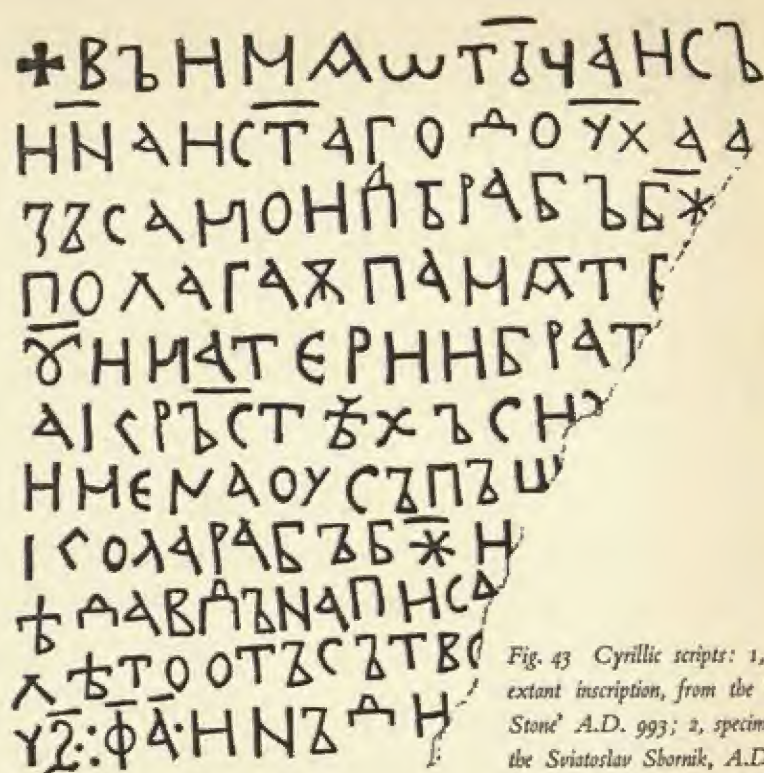 ✚ВЪИМѦѠТЬЧАИСЪ
ИНАИСТАГОДОУХАА
ЗЪСАМОИЛЪРАБЪБЖ
ПОЛАГАѬПАМѦТ
ꙊИМАТЕРИИБРАТ
АКРЪСТѢХЪСИ
ИМЕНАОУСЪПЪШ
КОЛАРАБЪБЖИ
ѢДАВДЪНАПИСА
ЛѢТООТЪСЪТВО
УЅ:ФА·ИНЪДИ
Fig. 43 Cyrillic scripts: 1,
extant inscription, from the
Stone' A.D. 993; 2, specim
the Sviatoslav Sbornik, A.D.